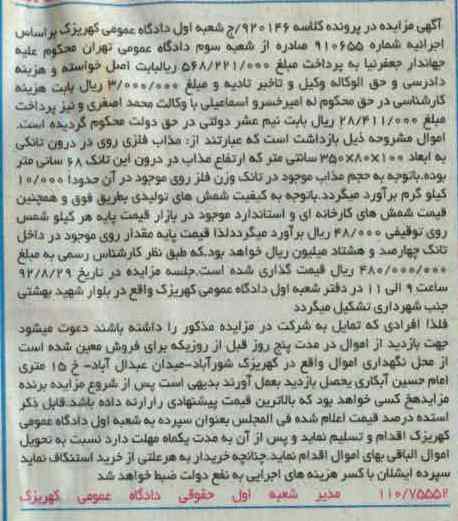 آگهی مزایده در پرونده کلاسه ۹۲۰۱۴۶/ج شعبه اول دادگاه عمومی کهریزک براساس
اجرائیه شماره ۹۱۰۶۵۵ صادره از شعبه سوم دادگاه عمومی تهران محکوم علیه
جهاندار جعفرنیا به پرداخت مبلغ ۵۶۸/۲۲۱/۰۰۰ ریالبابت اصل خواسته و هزینه
دادرسی و حق الوکاله وکیل و تاخیر تادیه و مبلغ ۳/۰۰۰/۰۰۰ ریال بابت هزینه
کارشناسی در حق محکوم له امیرخسرو اسماعیلی با وکالت محمد اصغری و نیز پرداخت
مبلغ ۲۸/۴۱۱/۰۰۰ ریال بابت نیم عشر دولتی در حق دولت محکوم گردیده است.
اموال مشروحه ذیل بازداشت است که عبارتند از: مذاب فلزی روی در درون تانکی
به ابعاد ۱۰۰×۸۰×۳۵۰ سانتی متر که ارتفاع مذاب در درون این تانک ۶۸ سانی متر
بوده.باتوجه به حجم مذاب موجود در تانک وزن فلز روی موجود در آن حدودا ۱۰/۰۰۰
کیلو گرم برآورد میگردد.باتوجه به کیفیت شمش های تولیدی بطریق فوق و همچنین
قیمت شمش های کارخانه ای و استاندارد موجود در بازار قیمت پایه هر کیلو شمس
روی توقیفی ۴۸/۰۰۰ ریال برآورد میگرددلذا قیمت پایه مقدار روی موجود در داخل
تانک چهارصد و هشتاد میلیون ریال خواهد بود.که طبق نظر کارشناس رسمی به مبلغ
۴۸۰/۰۰۰/۰۰۰ ریال قیمت گذاری شده است.جلسه مزایده در تاریخ ۹۲/۸/۲۹
ساعت ۹ الی ۱۱ در دفتر شعبه اول دادگاه عمومی کهریزک واقع در بلوار شهید بهشتی
جنب شهرداری تشکیل میگردد
فلذا افرادی که تمایل به شرکت در مزایده مذکور را داشته باشند دعوت میشود
جهت بازدید از اموال در مدت پنج روز قبل از روزیکه برای فروش معین شده است
از محل نگهداری اموال واقع در کهریزک شورآباد-میدان عبدال آباد- خ ۱۵ متری
امام حسین آبکاری یحصل بازدید بعمل آورند بدیهی است پس از شروع مزایده برنده
مزایدهخ کسی خواهد بود که بالاترین قیمت پیشنهادی رارارنه داده باشد.قابل ذکر
استده درصد قیمت اعلام شده فی المجلس بعنوان سپرده به شعبه اول دادگاه عمومی
کهریزک اقدام و تسلیم نماید و پس از آن به مدت یکماه مهلت دارد نسبت به تحویل
اموال الباقی بهای اموال اقدام نماید.چنانچه خریدار به هرعلتی از خرید استنکاف نماید
سپرده ایشان با کسر هزینه های اجرایی به نفع دولت ضبط خواهد شد
۱۱۰/۷۵۵۵۲ مدیر شعبه اول حقوقی دادگاه عمومی کهریزک